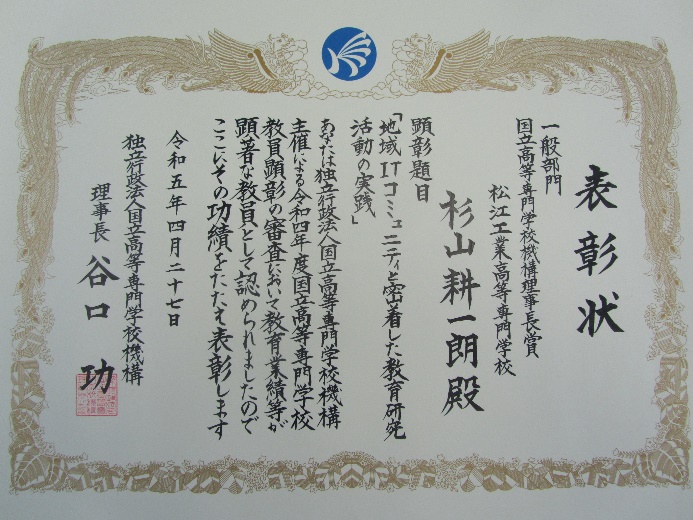 表彰状
一般部門
国立高等専門学校機構理事長賞
松江工業高等専門学校
杉山耕一朗殿
顕彰題目
「地域ITコミュニティと密着した教育研究
活動の実践」
あなたは独立行政法人国立高等専門学校機構
主催による令和四年度国立高等専門学校
教員顕彰の審査において教育業績等が
顕著な教員として認められましたので
ここにその功績をたたえ表彰します
令和五年四月二十七日
独立行政法人国立高等専門学校機構
理事長 谷口功